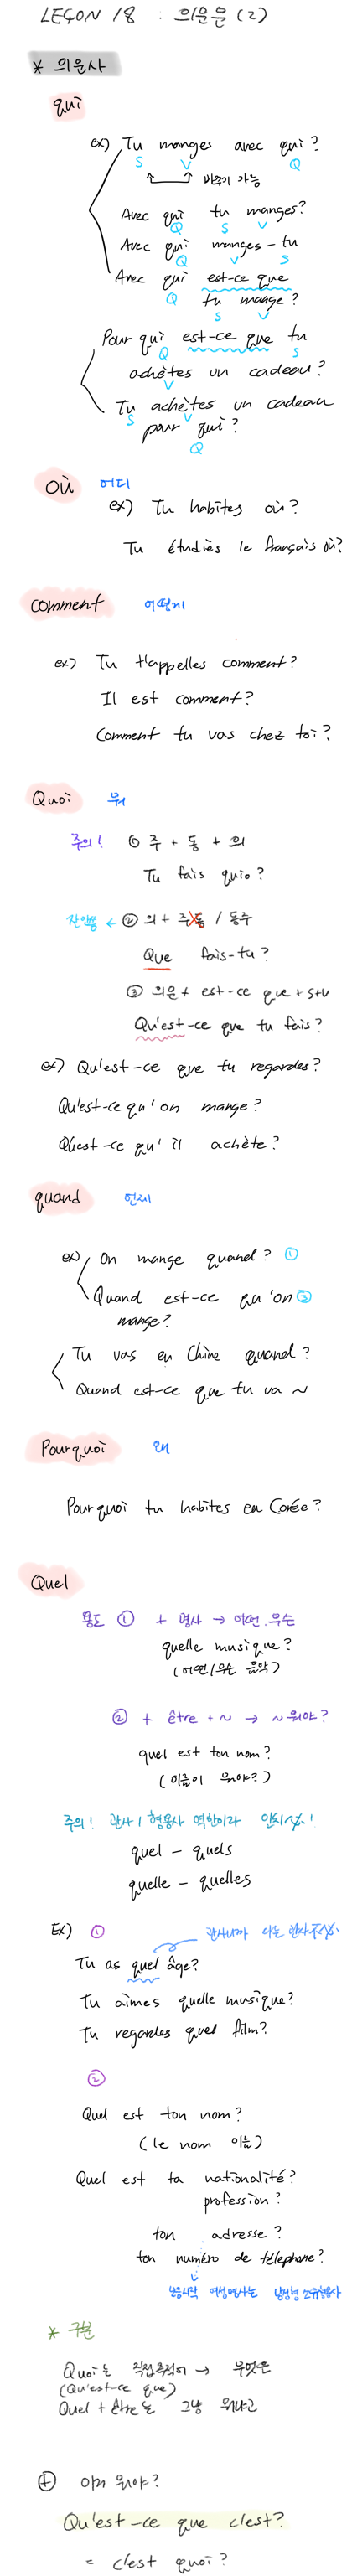 LEÇON 18 : 의문문 (2)
* 의문사
qui
ex) Tu manges avec qui ?
S V Q
바꾸기 가능
Avec qui tu manges?
Q S V
Avec qui manges-tu
Q V S
Avec qui est-ce que
Q
tu mange ?
S V
Pour qui est-ce que tu
Q S
achètes un cadeau?
V
Tu achètes un cadeau
S V
pour qui ?
Q
où 어디
ex) Tu habites où ?
Tu étudiès le français où?
comment 어떻게
ex) Tu t'appelles comment ?
Il est comment ?
Comment tu vas chez toi ?
Quoi 뭐
주의! ① 주 + 동 + 의
Tu fais quio ?
잔안씀 ← ② 의 + 주동 / 동주
Que fais-tu ?
③ 의문 + est-ce que + S+V
Qu'est-ce que tu fais ?
ex) Qu'est-ce que tu regardes ?
Qu'est-ce qu'on mange ?
Qu'est-ce qu'il achète ?
quand 언제
ex) On mange quand ? ①
Quand est-ce qu'on ③
mange ?
Tu vas en Chine quand ?
Quand est-ce que tu va ~
Pourquoi 왜
Pourquoi tu habites en Corée ?
Quel
용도 ① + 명사 → 어떤, 무슨
quelle musique ?
(어떤/무슨 음악)
② + être + ~ → ~ 뭐야 ?
quel est ton nom ?
(이름이 뭐야?)
주의! 관사/형용사 역할이라 !
quel - quels
quelle - quelles
Ex) ①
관사니까 다른
Tu as quel âge?
Tu aimes quelle musique?
Tu regardes quel film?
②
Quel est ton nom ?
(le nom 이름)
Quel est ta nationalité ?
profession ?
ton adresse ?
ton numéro de télephone ?
모음시작 여성명사는 남성형 소유형용사
* 구분
Quoi는 직접목적어 → 무엇은
(Qu'est-ce que)
Quel + être는 그냥 뭐냐고
⊕ 이거 뭐야 ?
Qu'est-ce que c'est?
= c'est quoi ?